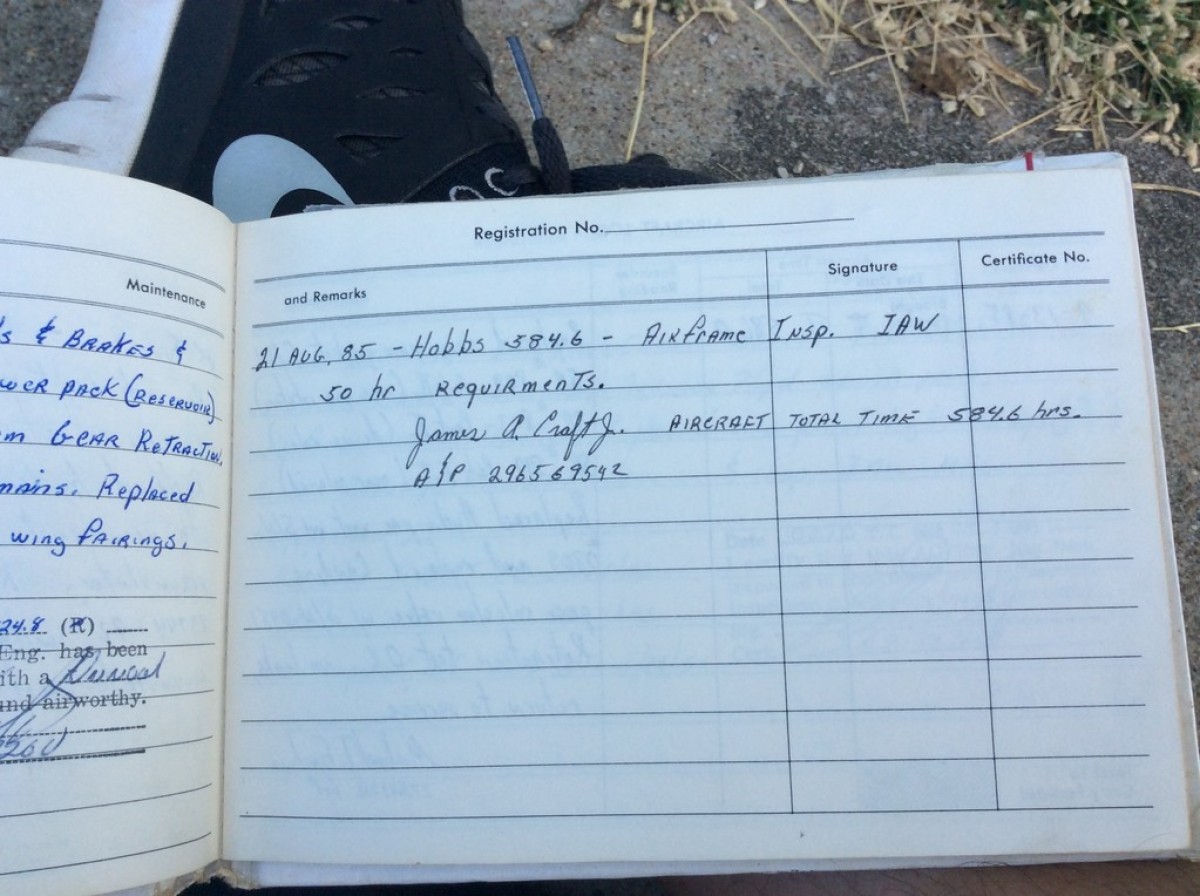 Maintenance
& BRAKES &
PACK (RESERVOIR)
GEAR RETRACTION.
Replaced
wing FAIRINGS.
24.8 (R)
Eng. has been
ith a Annual
und airworthy.
Registration No.
and Remarks
Signature
Certificate No.
21 AUG, 85 - Hobbs 584.6 - AIRframe Insp. IAW
50 hr REQUIRmenTs.
James A. Craft Jr. AIRCRAFT TOTAL TIME 584.6 hrs.
A&P 296569542